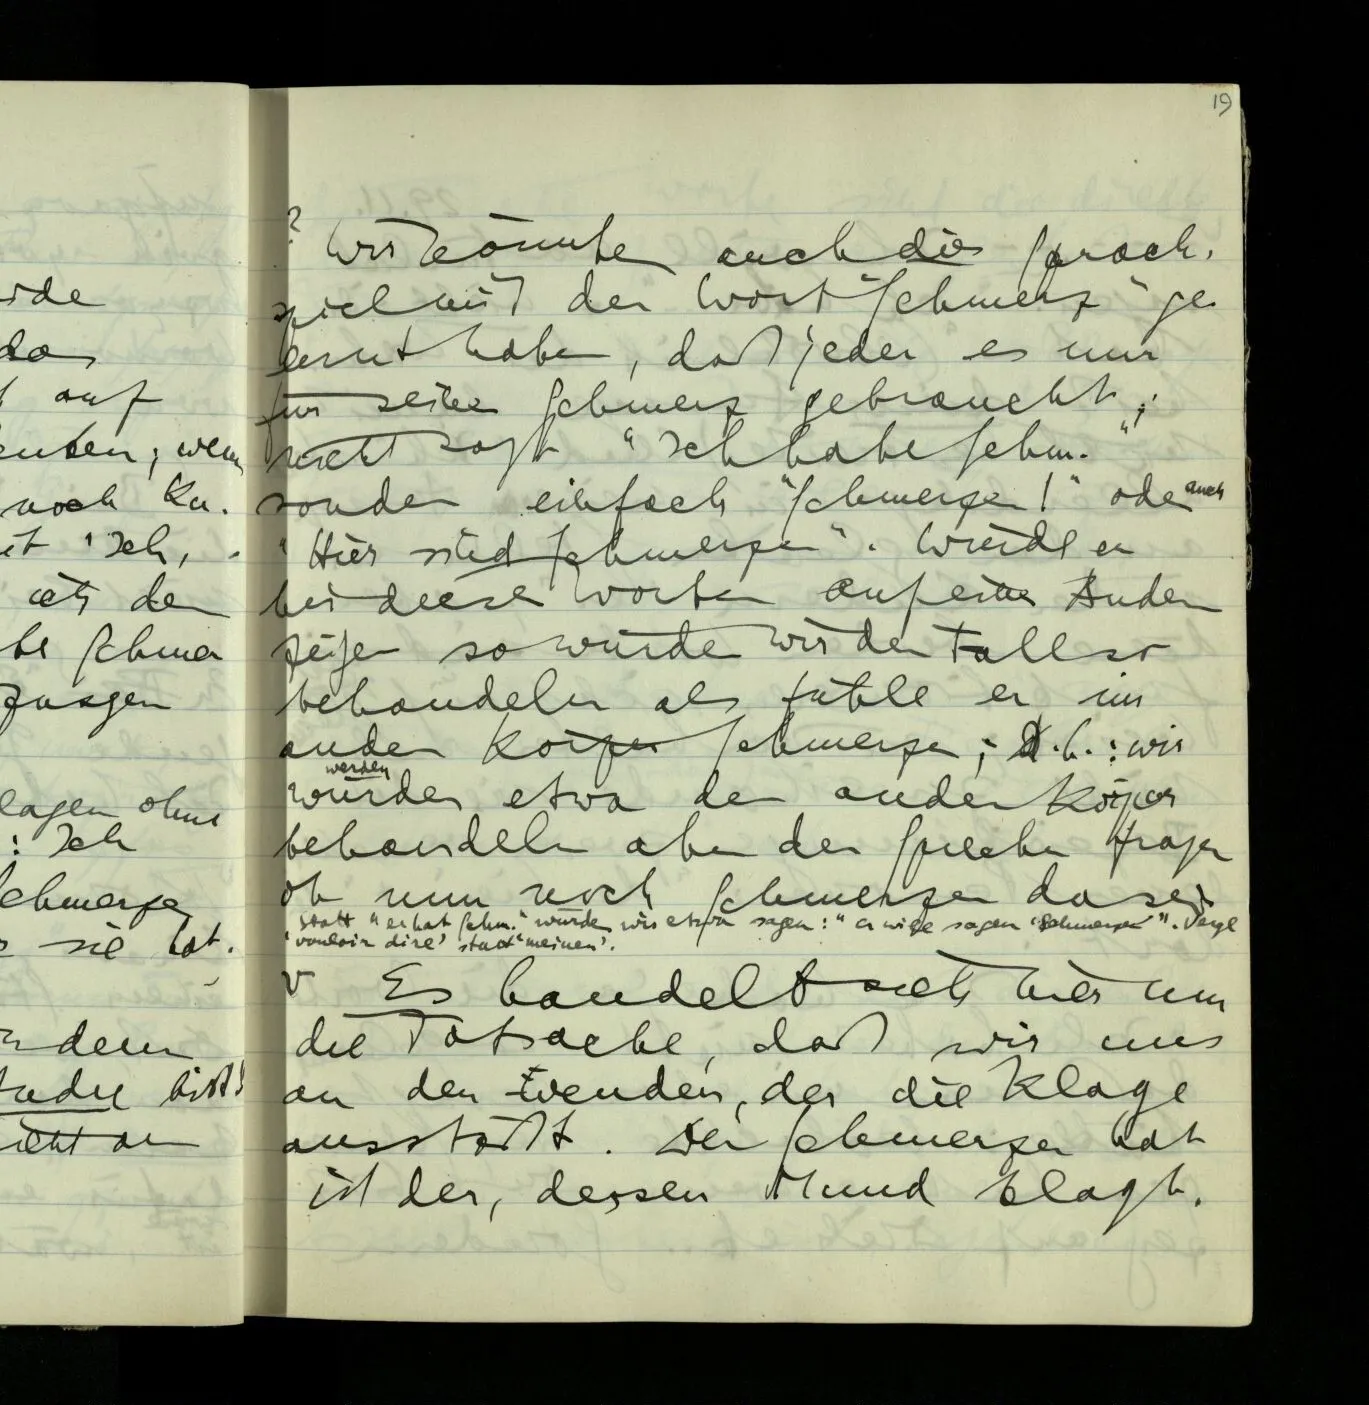 ide
das
auf
enken; wenn
noch Kn.
et 'Ich,
als den
be Schmer
zusgen
lagen ohne
: Ich
Schmerzen
sie hat.
dem
bist!
an
19
? Wir könnten auch das Sprach-
spiel mit den Wort "Schmerz" ge
lernt haben, daß jeder es nur
für seine Schmerz gebraucht;
nicht sagt "Ich habe Schm."
sonder einfach "Schmerzen!" oder auch
"Hier sind Schmerzen". Würde er
bei diesen Worten auf einen Andern
zeigen so würden wir den Fall so
behandeln als fühle er im
andern Körper Schmerzen; d.h.: wir
werden
würden etwa den andern Körper
behandeln aber den Sprecher fragen
ob nun noch Schmerzen da seien
Statt "er hat Schm." würden wir etwa sagen: "er will sagen 'Schmerzen'". Vergl
'vouloir dire' statt 'meinen'.
v Es handelt sich hier um
die Tatsache, daß wir uns
an den wenden, der die Klage
ausstößt. Der Schmerzen hat
ist der, dessen Mund klagt.